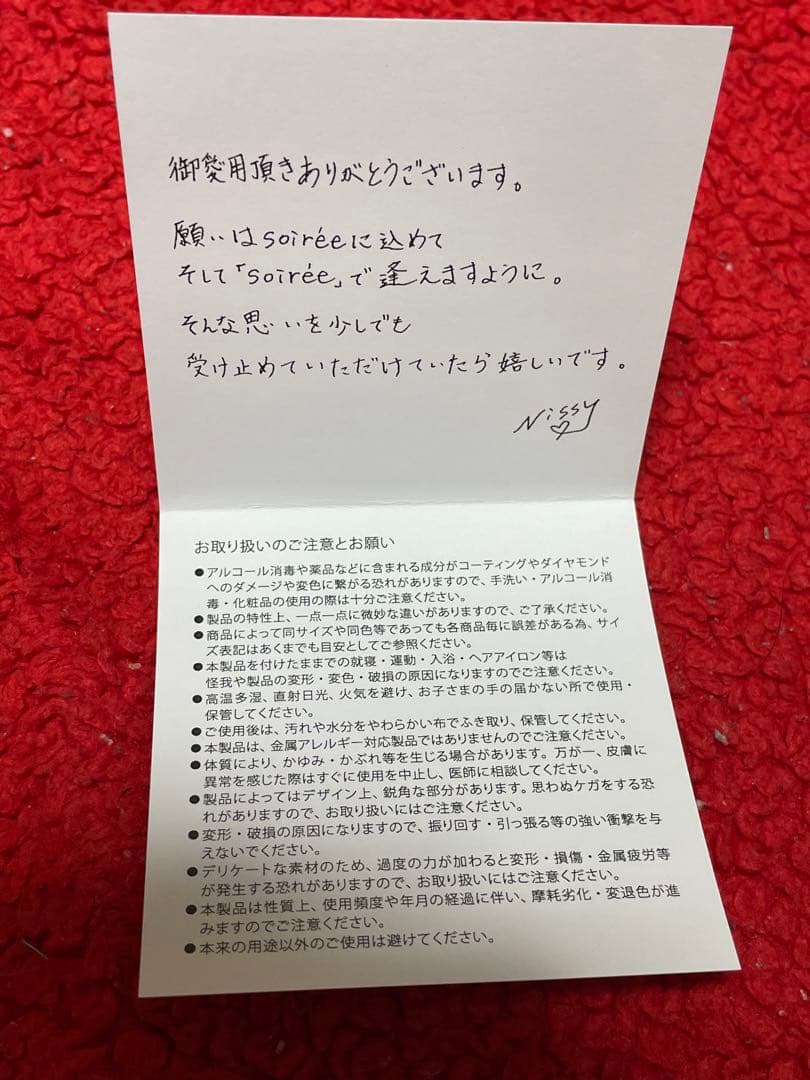 御愛用頂きありがとうございます。
願いはsoiréeに込めて
そして「soirée」で逢えますように。
そんな思いを少しでも
受け止めていただけていたら嬉しいです。
Nissy
お取り扱いのご注意とお願い
●アルコール消毒や薬品などに含まれる成分がコーティングやダイヤモンド
へのダメージや変色に繋がる恐れがありますので、手洗い・アルコール消
毒・化粧品の使用の際は十分ご注意ください。
●製品の特性上、一点一点に微妙な違いがありますので、ご了承ください。
●商品によって同サイズや同色等であっても各商品毎に誤差がある為、サイ
ズ表記はあくまでも目安としてご参照ください。
●本製品を付けたままでの就寝・運動・入浴・ヘアアイロン等は
怪我や製品の変形・変色・破損の原因になりますのでご注意ください。
●高温多湿、直射日光、火気を避け、お子さまの手の届かない所で使用・
保管してください。
●ご使用後は、汚れや水分をやわらかい布でふき取り、保管してください。
●本製品は、金属アレルギー対応製品ではありませんのでご注意ください。
●体質により、かゆみ・かぶれ等を生じる場合があります。万が一、皮膚に
異常を感じた際はすぐに使用を中止し、医師に相談してください。
●製品によってはデザイン上、鋭角な部分があります。思わぬケガをする恐
れがありますので、お取り扱いにはご注意ください。
●変形・破損の原因になりますので、振り回す・引っ張る等の強い衝撃を与
えないでください。
●デリケートな素材のため、過度の力が加わると変形・損傷・金属疲労等
が発生する恐れがありますので、お取り扱いにはご注意ください。
●本製品は性質上、使用頻度や年月の経過に伴い、摩耗劣化・変退色が進
みますのでご注意ください。
●本来の用途以外のご使用は避けてください。